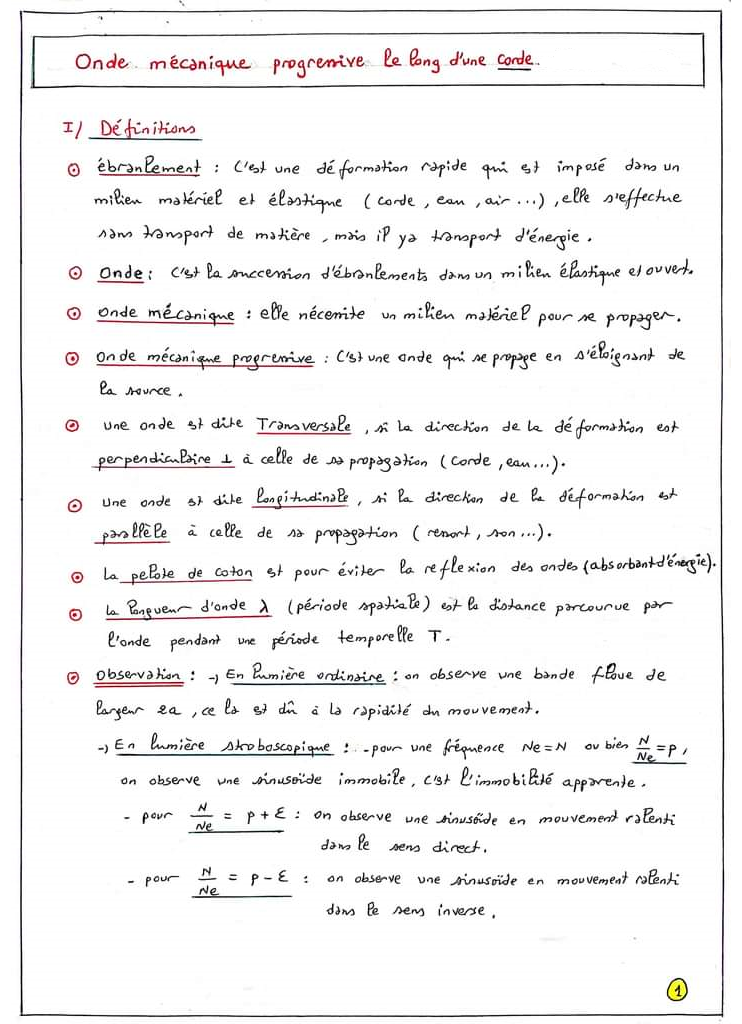 Onde mécanique progressive le long d'une corde.
I/ Définitions
ébranlement : C'est une déformation rapide qui est imposé dans un
milien matériel et élastique (corde, eau, air ...), elle s'effectue
sans transport de matière, mais il ya transport d'énergie.
Onde : C'est la succession d'ébranlements dans un milien élastique et ouvert.
Onde mécanique : elle nécessite un milien matériel pour se propager.
Onde mécanique progressive : C'est une onde qui se propage en s'éloignant de
la source.
Une onde est dite Transversale, si la direction de la déformation est
perpendiculaire ⊥ à celle de sa propagation (corde, eau...).
Une onde est dite longitudinale, si la direction de la déformation est
parallèle à celle de sa propagation (ressort, son...).
La pelote de coton est pour éviter la reflexion des ondes (absorbant d'énergie).
la longueur d'onde λ (période spatiale) est la distance parcourue par
l'onde pendant une période temporelle T.
Observation : → En lumière ordinaire : on observe une bande floue de
largeur 2a, ce la est dû à la rapidité du mouvement.
→ En lumière stroboscopique : - pour une fréquence Ne = N ou bien N/Ne = p,
on observe une sinusoïde immobile, c'est l'immobilité apparente.
- pour N/Ne = p + ε : on observe une sinusoïde en mouvement ralenti
dans le sens direct.
- pour N/Ne = p - ε : on observe une sinusoïde en mouvement ralenti
dans le sens inverse.
1